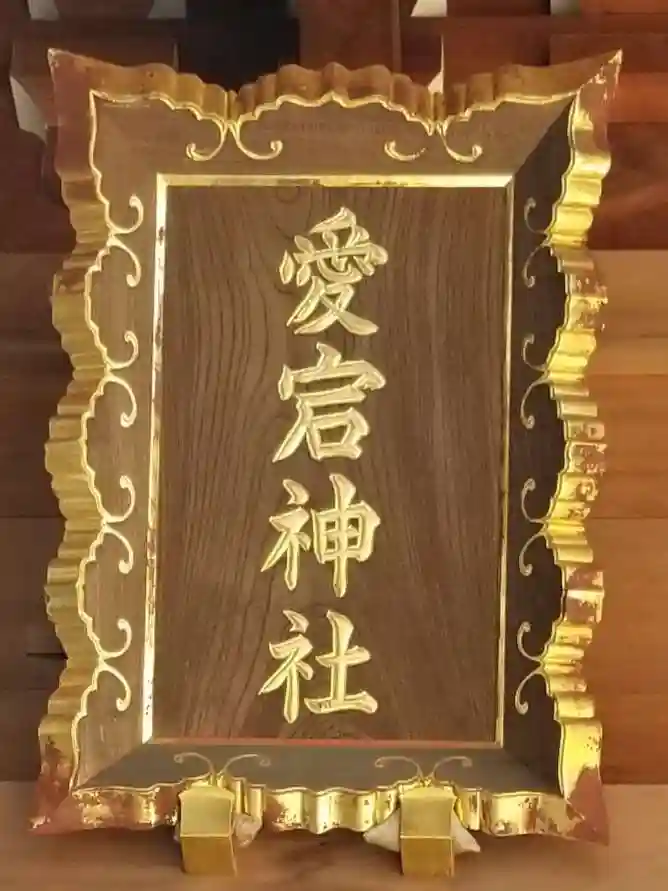 愛宕神社